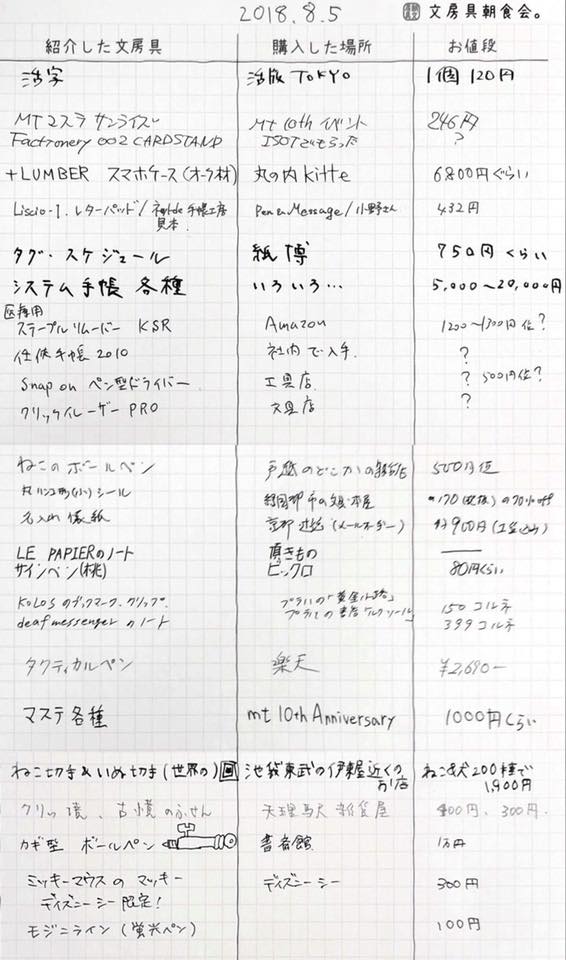 2018.8.5 文房具朝食会。
紹介した文房具 購入した場所 お値段
活字 活版 TOKYO 1個 120円
MT 2スラ サンライズ mt 10th イベント 246円
Factionery 002 CARDSTAND ISOTでもらった ?
+LUMBER スマホケース(オーク材) 丸の内 kitte 6800円ぐらい
Liscio-1 レターパッド/ 手帳工房 Pen and Message/小野さん 432円
見本
タグ・スケジュール 紙博 750円くらい
システム手帳 各種 いろいろ… 5,000〜20,000円
医療用
ステープルリムーバー KSR Amazon 1200〜1300円位?
任侠手帳2010 社内で入手. ?
Snap on ペン型ドライバー. 工具店. ? 500円位?
クリックイレーザー PRO 文具店 ?
ねこのボールペン 戸越のどこかの 500円位
丸ハンコ形(小)シール
名入れ懐紙 京都 (メールオーダー) 約900円
LE PAPIERのノート 頂きもの ―
サインペン(桃) ビックロ 80円くらい
KOLOSのブックマーク.クリップ. プラハの「黄金小路」 150 コルネ
deaf messenger のノート プラハの書店「ルクソール」 399 コルネ
タクティカルペン 楽天 ¥2,690-
マステ各種 mt 10th Anniversary 1000円くらい
ねこ切手&いぬ切手(世界の) 池袋東武の伊東屋近くの ねこ犬200種で
お店 1,900円
のふせん 天理駅 雑貨屋 400円、300円.
カギ型 ボールペン 書斎館 1万円
ミッキーマウスの マッキー ディズニーシー 300円
ディズニーシー限定!
モジニライン(蛍光ペン) 100円